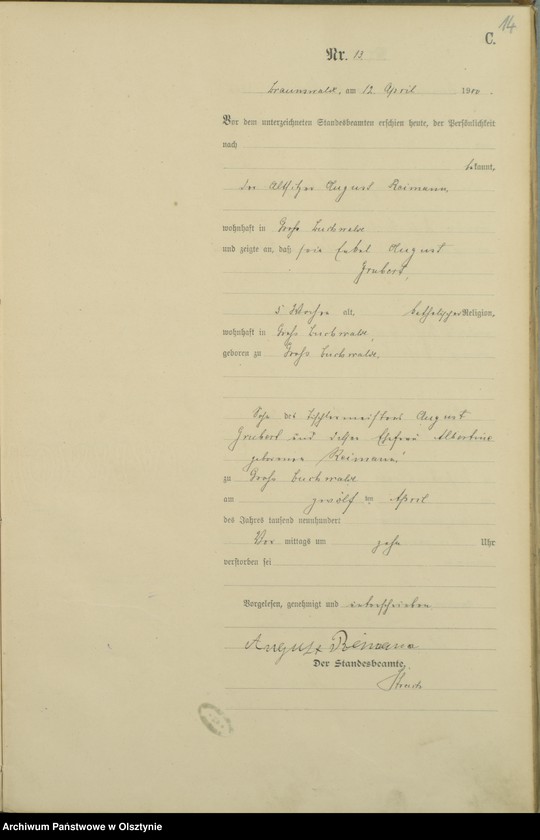 14
C.
Nr. 13
Braunswalde, am 12. April 1900.
Vor dem unterzeichneten Standesbeamten erschien heute, der Persönlichkeit
nach
bekannt,
der Altsitzer August Reimann,
wohnhaft in Groß Buchwalde
und zeigte an, daß sein Enkel August
Grubert,
5 Wochen alt, katholischer Religion,
wohnhaft in Groß Buchwalde,
geboren zu Groß Buchwalde,
Sohn des Tischlermeisters August
Grubert und dessen Ehefrau Albertine
geborenen Reimann
zu Groß Buchwalde
am zwölften April
des Jahres tausend neunhundert
Vor mittags um zehn Uhr
verstorben sei
Vorgelesen, genehmigt und unterschrieben
August Reimann
Der Standesbeamte.
Archiwum Państwowe w Olsztynie